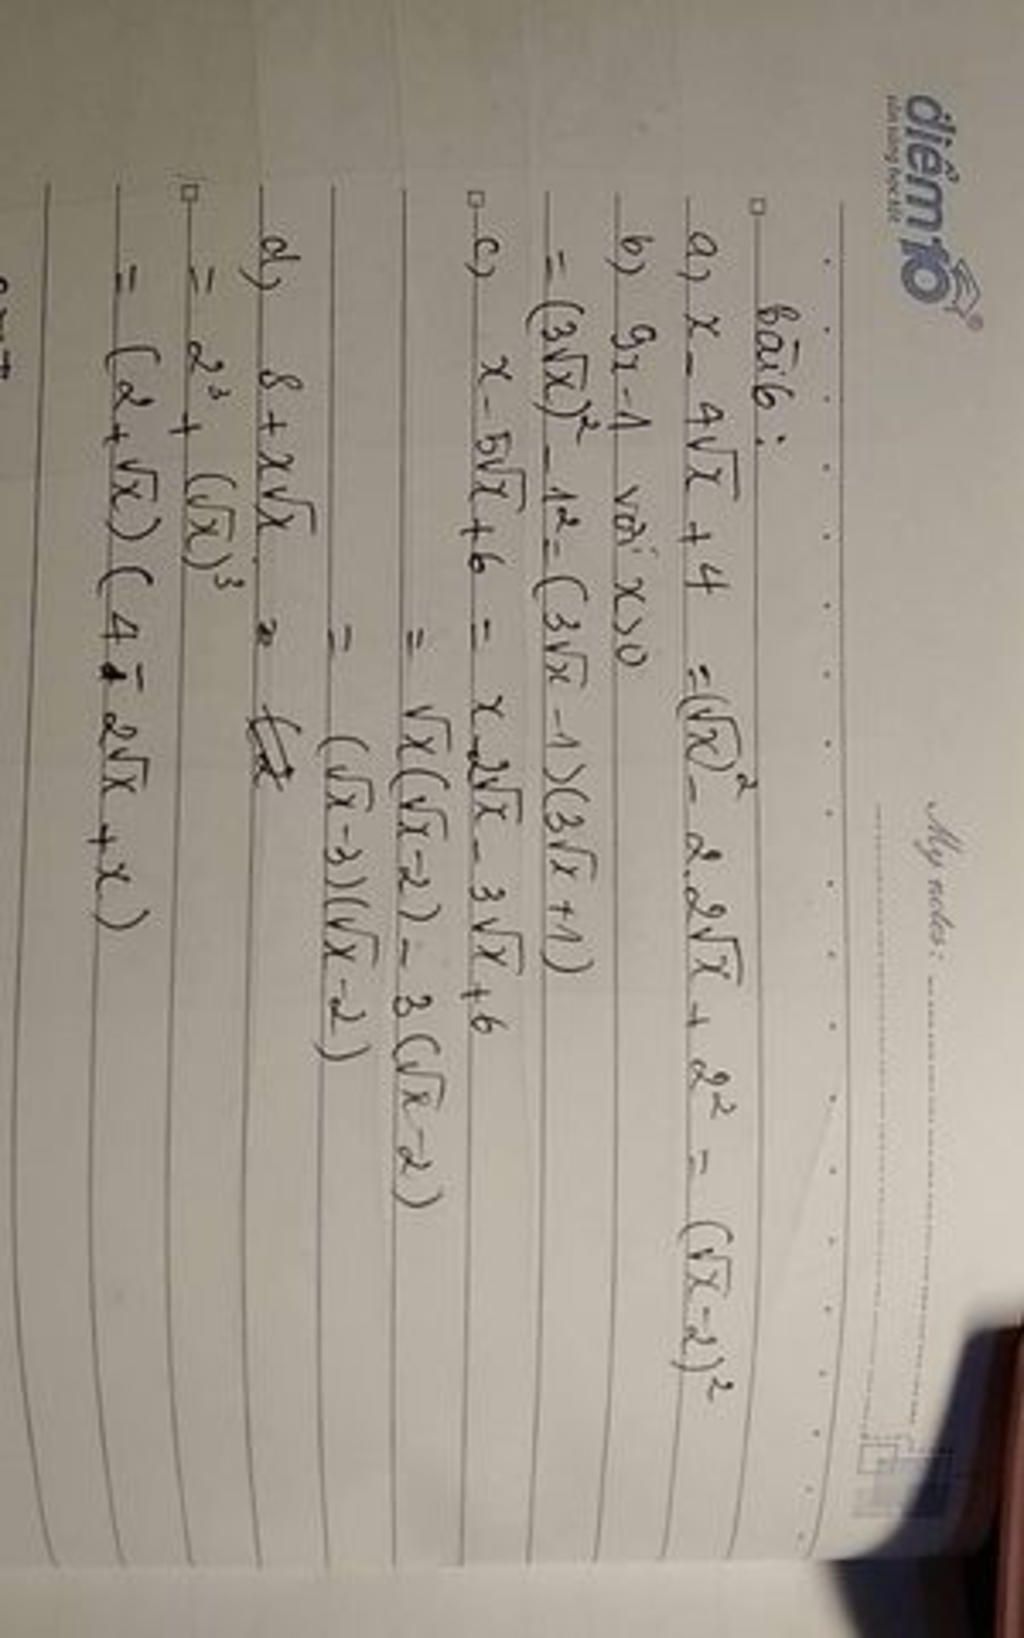 điểm10®
My notes:
bài 6:
a) x - 4√x + 4 = (√x)² - 2.2√x + 2² = (√x - 2)²
b) 9x - 1 với x>0
= (3√x)² - 1² = (3√x - 1)(3√x + 1)
c) x - 5√x + 6 = x - 2√x - 3√x + 6
= √x(√x - 2) - 3(√x - 2)
= (√x - 3)(√x - 2)
d) 8 + x√x =
= 2³ + (√x)³
= (2 + √x)(4 - 2√x + x)